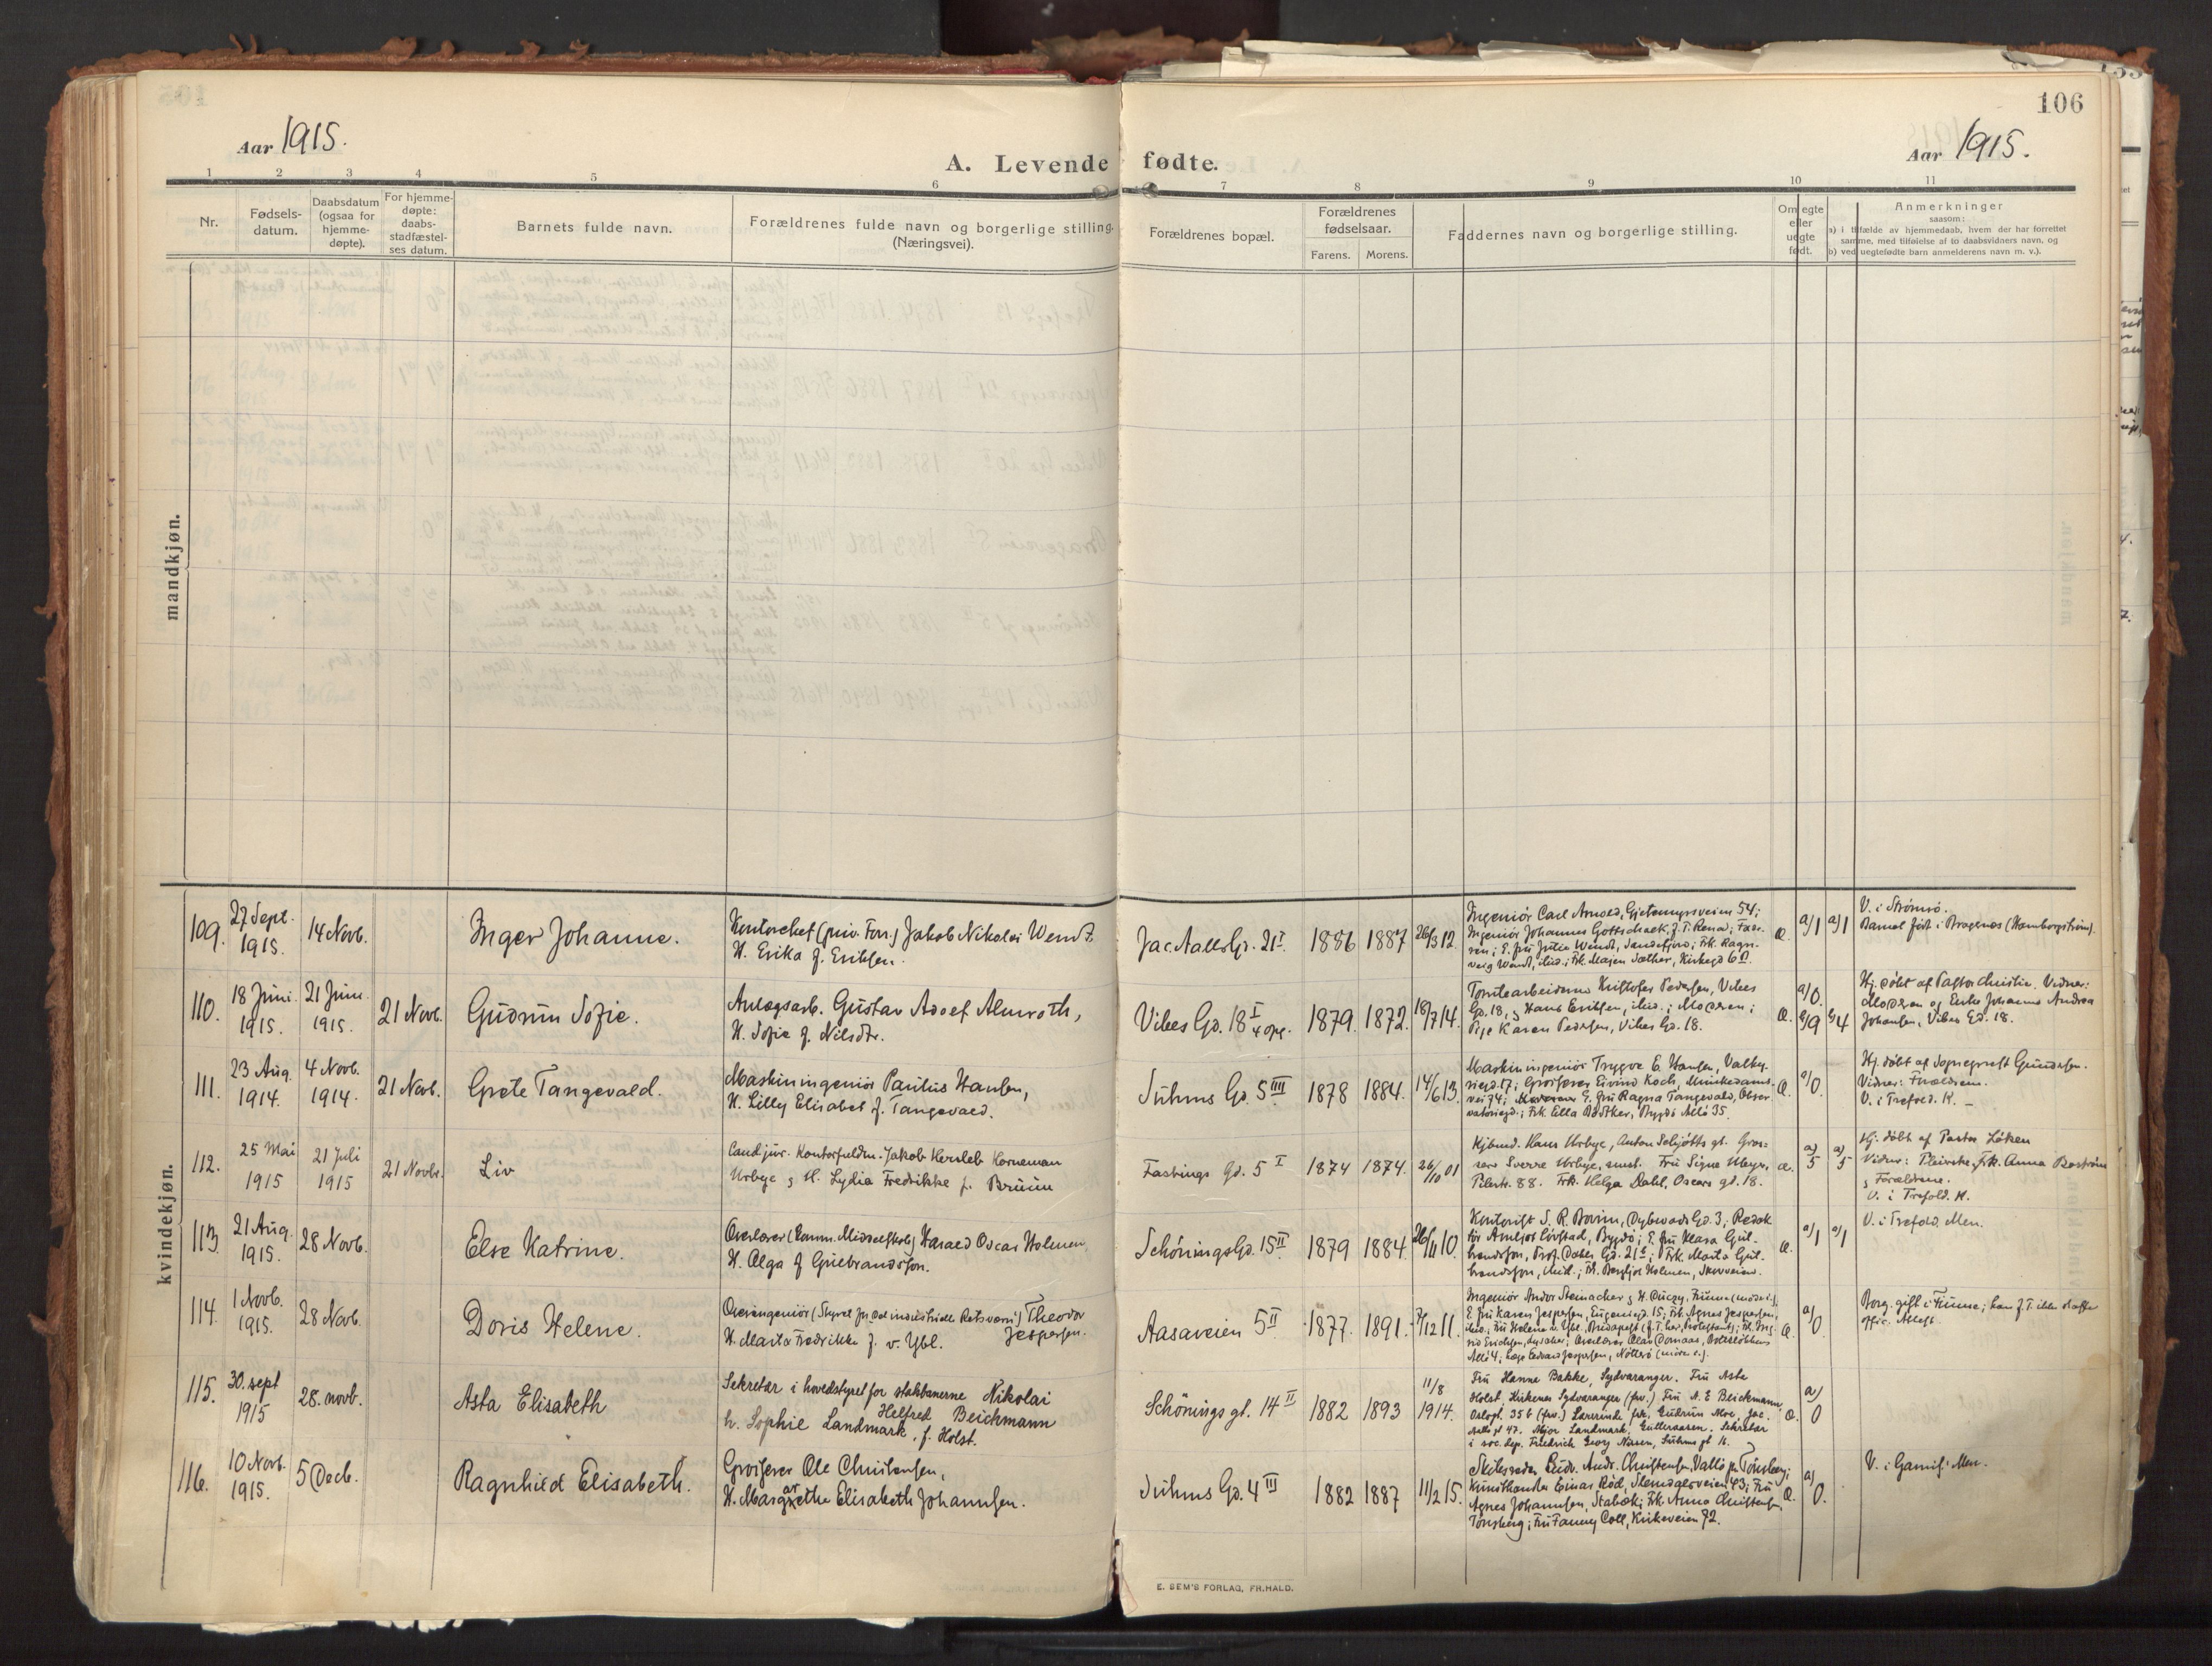 106
Aar 1915.
A. Levende fødte.
Aar 1915.
1 2 3 4 5 6 7 8 9 10 11
Nr.
Fødsels-
datum.
Daabsdatum
(ogsaa for
hjemme-
døpte).
For hjemme-
døpte:
daabs-
stadfæstel-
ses datum.
Barnets fulde navn.
Forældrenes fulde navn og borgerlige stilling.
(Næringsvei).
Forældrenes bopæl.
Forældrenes
fødselsaar.
Farens. Morens.
Faddernes navn og borgerlige stilling.
Om egte
eller
uegte
født.
Anmerkninger
saasom:
a) i tilfælde av hjemmedaab, hvem der har forrettet
samme, med tilføielse af to daabsvidners navn, og
b) ved uegtefødte barn anmelderens navn m. v.).
mandkjøn.
kvindekjøn.
109.
27 Sept.
1915.
14 Novb.
Inger Johanne.
Kontorchef (priv. Forr.) Jakob Nikolai Wendt
H. Erika f. Eriksen.
Jac. Aalls Gd. 21 I
1886 1887 26/3 12.
Ingeniør Carl Arnold, Gjetemyrsveien 54;
Ingeniør Johannes Gottschalck, f. T. Rena; Fade-
ren; E. fru Julie Wendt, Sandefjord; Frk. Ragn-
veig Wendt, ibid.; Frk. Majen Sæther, Kirkegd 6
Æ. a/1 a/1
V. i Strømsø.
Barnet født i Bragenes
110.
18 Juni
1915.
21 Juni
1915.
21 Novb.
Gudrun Sofie.
Anlægsarb. Gustav Adolf Almroth,
H. Sofie f. Nilsdtr.
Vibes Gd. 18 I
1879. 1872. 18/7 14.
Tomtearbeiderne Kristofer Pedersen, Vibes
Gd. 18, og Hans Eriksen, ibid.; Moderen;
Pige Karen Pedersen, Vibes Gd. 18.
Æ. a/0. b/9 b/4
Hj. døbt af Pastor Christie. Vidner:
Moderen og Enke Johanne Andrea
Johansen, Vibes Gd. 18.
111.
23 Aug.
1914.
4 Novb.
1914.
21 Novb.
Grete Tangevald.
Maskiningeniør Paulus Hansen,
H. Lilly Elisabet f. Tangevald.
Suhms Gd. 5 IIII
1878 1884. 14/6 13.
Maskiningeniør Trygve E. Hansen, Valky-
riegd. 17; Grosserer Eivind Koch, Munkedams-
vei 74; E. fru Ragna Tangevald, Obser-
vatoriegd.; Frk. Ella Bødtker, Bygdø Allé 35.
Æ. a/0.
Hj. døbt af Sogneprest Gundersen.
Vidner: Forældrene.
V. i Trefold. K. —
112.
25 Mai
1915
21 Juli
1915
21 Novbr.
Liv
Cand jur. Kontorfuldm. Jakob Hersleb Horneman
Urbye og H. Lydia Fredrikke f. Bruun
Fastings Gd. 5 I
1874 1874. 26/10 01
Kjbmd. Hans Urbye, Anton Schjøtts gt. Gros-
serer Sverre Urbye, smst. Fru Signe Meyer,
Pilestr. 88. Frk. Helga Dahl, Oscars gt. 18.
æ. a) 5 a) 5
Hj. døbt af Pastor Løken
Vidner: Pleierske, Frk. Anna Bostrøm
og Forældrene.
V. i Trefold. K.
113.
21 Aug.
1915.
28 Novb.
Else Katrine.
Overlærer (Komm. Middelskole) Harald Oscar Holmen,
H. Olga f Gulbrandssøn.
Schönings Gd. 15 II
1879 1884. 26/11 10.
Kontorist S. R. Borim, Dybwads Gd. 3; Redak
tør Amljot Løvstad, Bygdø; E. fru Klara Gul-
brandssøn, Prof. Dahls Gd. 21; Frk. Marta Gul-
brandssøn, ibid.; Frk. Bergljot Holmen,
Æ. a/1 a/1
V. i Trefold. Men.
114.
1 Novb.
1915.
28 Novb.
Doris Helene.
Overingeniør (Styret for det industrielle Retsværn) Theodor
Jespersen.
H. Marta Fredrikke f. v. Ybl.
Aasaveien 5 II
1877. 1891. 7/12 11.
Ingeniør Andor Steinacher
E. fru Karen Jespersen, Eugeniegd. 15; Frk. Agnes Jespersen,
ibid.; Fru Helene v. Ybl, Budapest
Allé 4; Læge Edvard Jespersen, Nøtterø
Æ. a) 0
Borg. gift i Fiume; kan f. T. ikke skaffe
offic. Attest.
115.
30. sept
1915
28. novb.
Asta Elisabeth
Sekretær i hovedstyret for statsbanerne Nikolai
Helfred Beichmann
h. Sophie Landmark, f. Holst.
Schönings gt. 14 II
1882 1893
11/8
1914.
Fru Hanne Bakke, Sydvaranger. Fru Asta
Holst, Kirkenes Sydvaranger (frv.) Fru A. E Beichmann,
Oslogt. 35 b (frv.) Lærerinde frk. Gudrun Moe, Jac.
Aalls gt 47. Major Landmark, Gutteraasen. Sekretær
i soc. dep. Friedrich Georg Nissen, Suhms gt 16.
Æ. a) 0
116.
10 Novb.
1915.
5 Decb.
Ragnhild Elisabeth.
Grosserer Ole Christensen,
H. Margarethe Elisabeth Johannsen.
Suhms Gd. 4 III
1882 1887 11/2 15.
Skibsreder Ludv. Andr. Christensen, Vallø pr Tønsberg;
Kunsthandler Einar Rød, Slemdalsveien 43; Fru
Agnes Johannsen, Stabæk; Frk. Anna Christensen,
Tønsberg; Fru Fanny Coll, Kirkeveien 92.
Æ. a) 0.
V. i Gamle Men.
E. SEM'S FORLAG, FR. HALD.